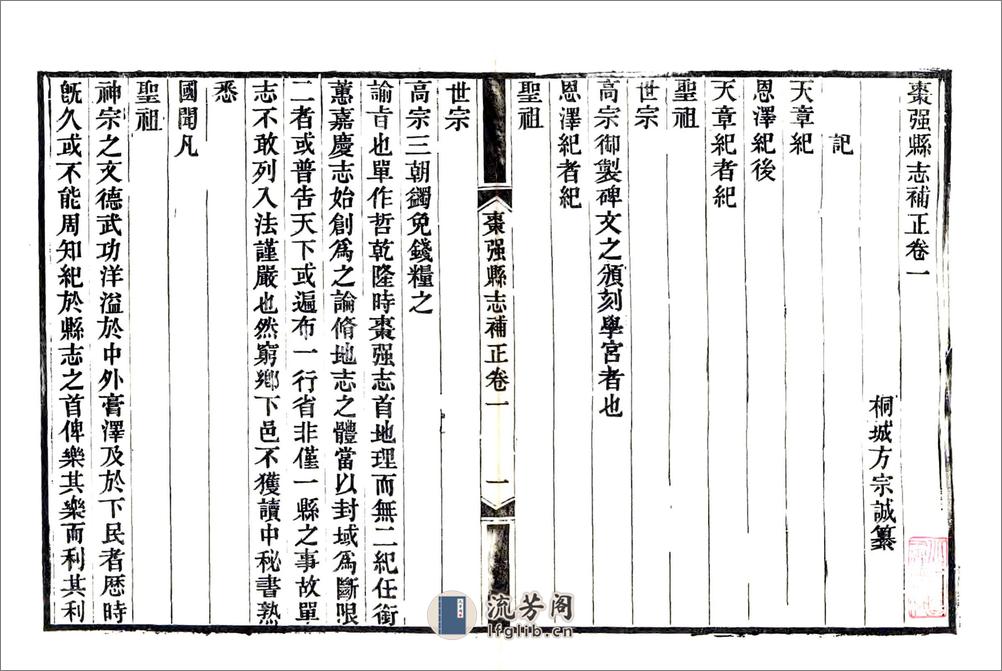 棗强縣志補正卷一
桐城方宗誠纂
記
天章紀
恩澤紀後
天章紀者紀
聖祖
世宗
高宗御製碑文之頒刻學宮者也
恩澤紀者紀
聖祖
棗强縣志補正卷一
一
世宗
高宗三朝蠲免錢糧之
諭旨也單作哲乾隆時棗强志首地理而無二紀任銜
蕙嘉慶志始創爲之論脩地志之體當以封域爲斷限
二者或普告天下或遍布一行省非僅一縣之事故單
志不敢列入法謹嚴也然窮鄉下邑不獲讀中秘書熟
悉
國聞凡
聖祖
神宗之文德武功洋溢於中外膏澤及於下民者歷時
既久或不能周知紀於縣志之首俾樂其樂而利其利
流芳阁
lfglib.cn